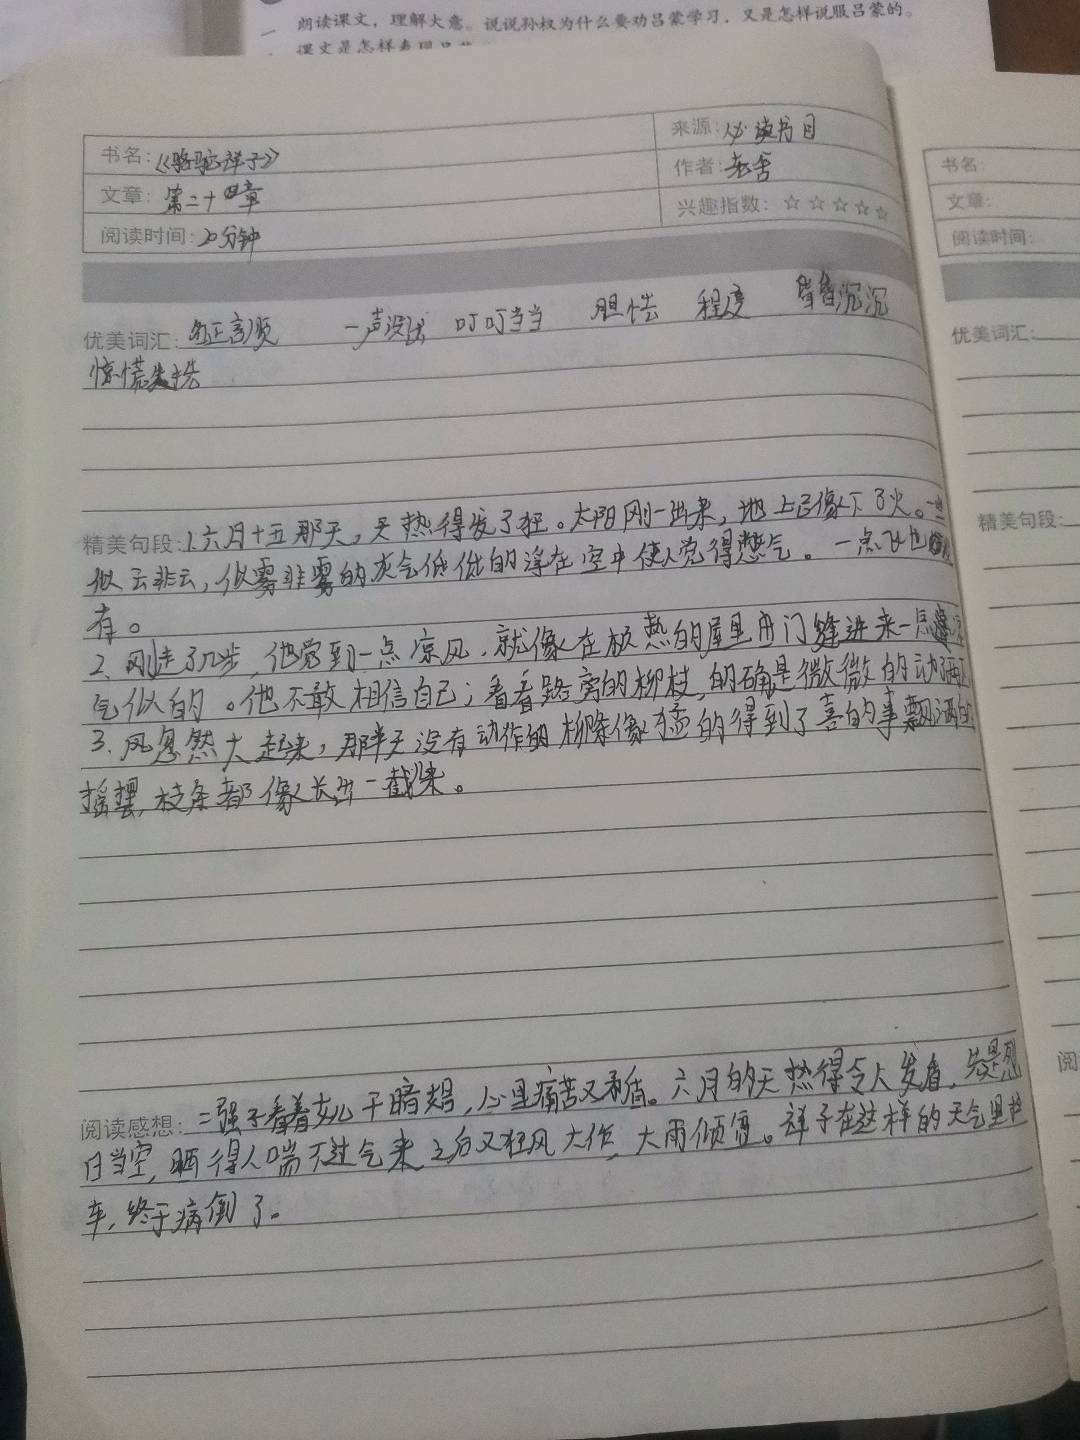 朗读课文，理解大意。说说孙权为什么要劝吕蒙学习，又是怎样说服吕蒙的。
课文是怎样表现吕
书名：《骆驼祥子》
来源：必读书目
文章：第二十四章
作者：老舍
阅读时间：20分钟
兴趣指数：☆☆☆☆☆
优美词汇：名正言顺 一声没出 叮叮当当 胆怯 程度 昏昏沉沉
惊慌失措
精美句段：1.六月十五那天，天热得发了狂。太阳刚一出来，地上已像下了火。一些
似云非云，似雾非雾的灰气低低的浮在空中使人觉得憋气。一点风也
有。
2、刚走了几步，他觉到一点凉风，就像在极热的屋里由门缝进来一点凉
气似的。他不敢相信自己；看看路旁的柳枝，的确是微微的动
3、风忽然大起来，那半天没有动作的柳条像猛的得到了喜的事飘洒的
摇摆，枝条都像长出一截来。
阅读感想：二强子看着女儿干暗娼，心里痛苦又矛盾。六月的天热得令人发省，先是烈
日当空，晒得人喘不过气来之后又狂风大作，大雨倾
。祥子在这样的天气里拉
车，终于病倒了。
书名：
文章：
阅读时间：
优美词汇：
精美句段：
阅